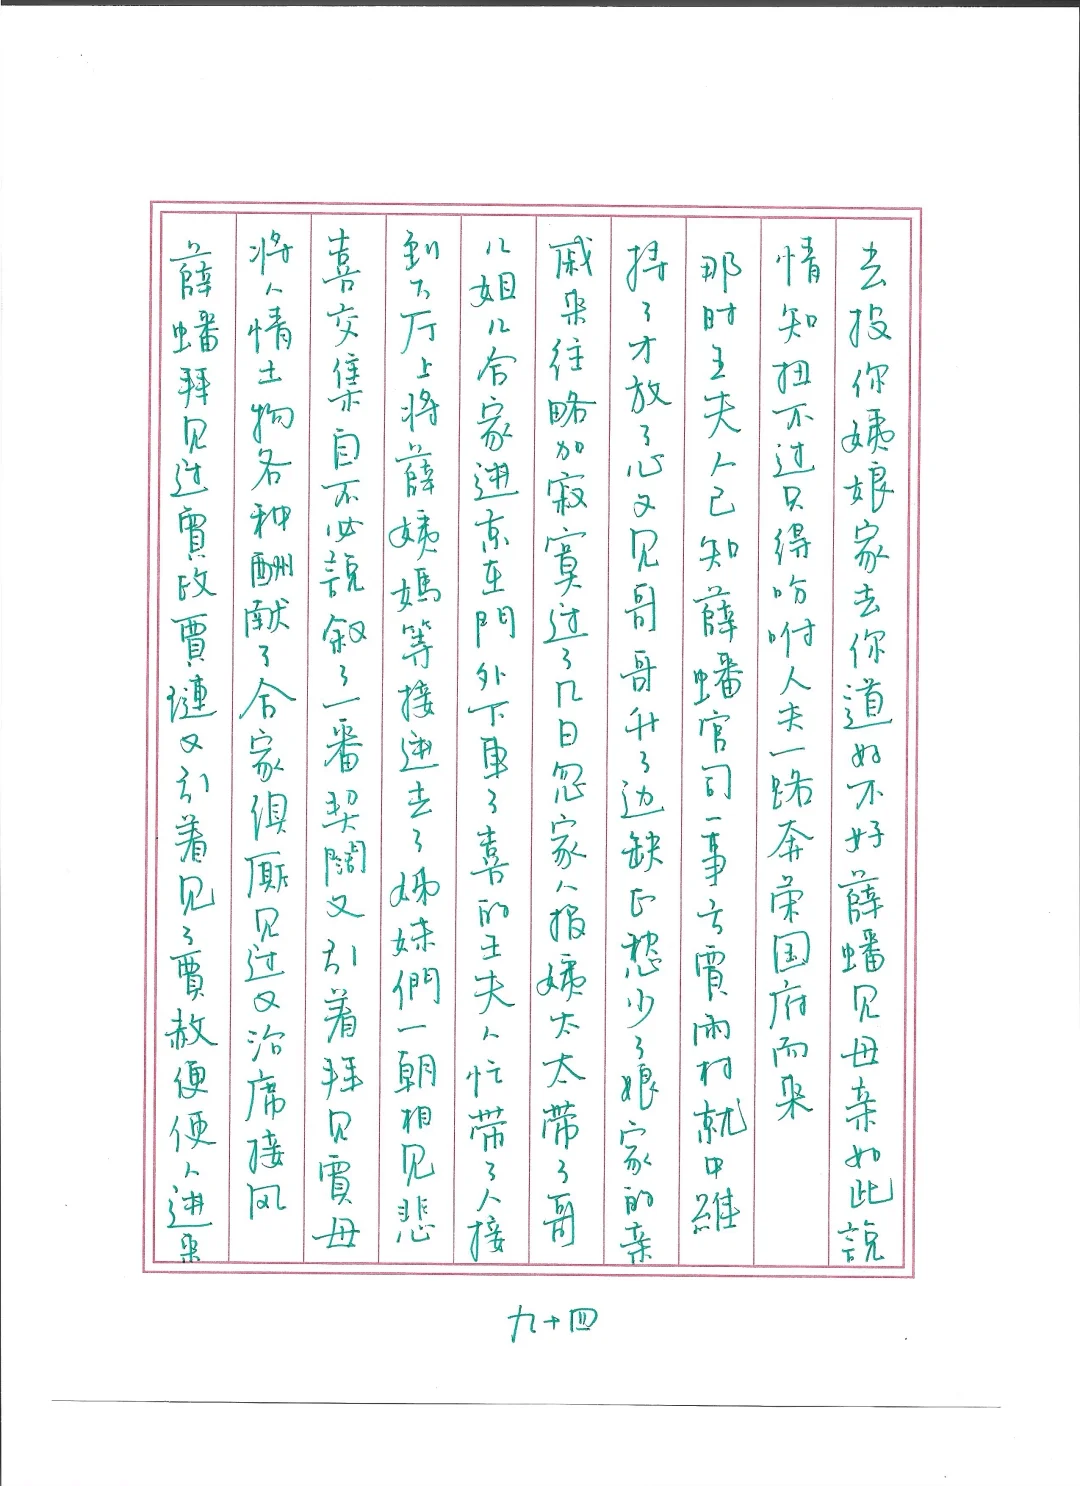 去投你姨娘家去你道好不好薛蟠见母亲如此說
情知扭不过只得吩咐人夫一路奔荣国府而来
那时王夫人已知薛蟠官司一事亏賈雨村就中維
持了才放了心又见哥哥升了边缺正愁少了娘家的亲
戚来往略加寂寞过了几日忽家人报姨太太带了哥
儿姐儿合家進京在門外下車了喜的王夫人忙带了人接
到大厅上将薛姨媽等接進去了姊妹們一朝相见悲
喜交集自不必說叙了一番契阔又引着拜见賈母
将人情土物各种酬献了合家俱厮见过又治席接风
薛蟠拜见过賈政賈璉又引着见了賈赦便便人進来
九十四